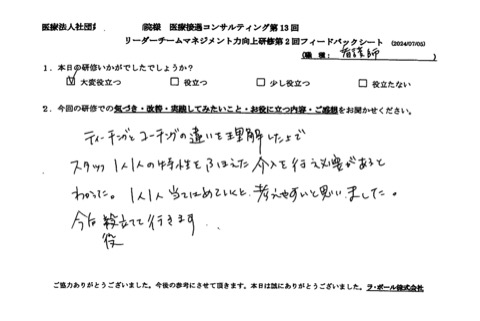 医療法人社団 院様 医療接遇コンサルティング第13回
リーダーチームマネジメント力向上研修第2回フィードバックシート (2024/07/05)
(職種: 看護師 )
1.本日の研修いかがでしたでしょうか?
☑ 大変役立つ □ 役立つ □ 少し役立つ □ 役立たない
2.今回の研修での気づき・改善・実践してみたいこと・お役に立つ内容・ご感想をお聞かせください。
ティーチングとコーチングの違いを理解した上で
スタッフ1人1人の特性をふまえた介入を行う必要があると
わかった。1人1人当てはめていくと、考えやすいと思いました。
今後役立てて行きます
役
ご協力ありがとうございました。今後の参考にさせて頂きます。本日は誠にありがとうございました。ラ・ポール株式会社